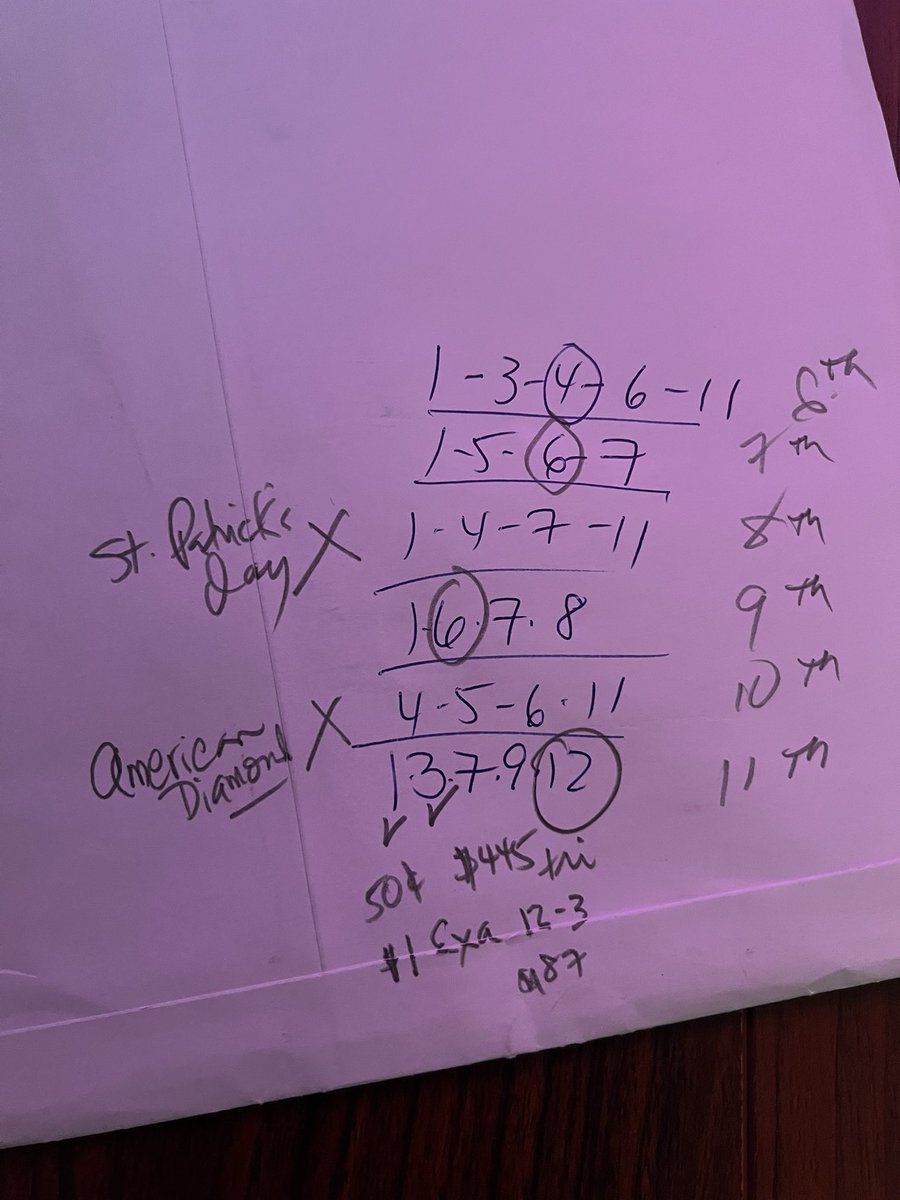 1-3-4-6-11 6th
1-5-6-7 7th
St. Patrick's Day X 1-4-7-11 8th
1.6.7.8 9th
10th
American Diamond X 4.5-6.11
1.3.7.9.12 11th
50¢ $445 tri
$1 Exa 12-3
87